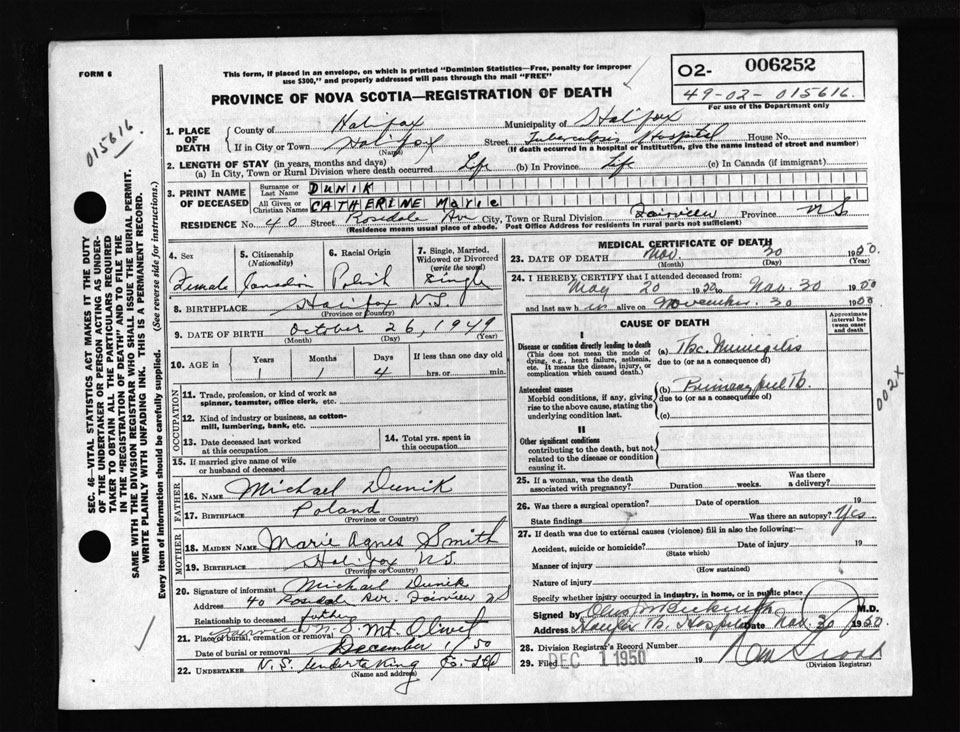 FORM 6
This form, if placed in an envelope, on which is printed "Dominion Statistics—Free, penalty for improper
use $300," and properly addressed will pass through the mail "FREE"
PROVINCE OF NOVA SCOTIA—REGISTRATION OF DEATH
O2- 006252
49-02-015616.
For use of the Department only
015616.
1. PLACE OF DEATH
County of Halifax Municipality of Halifax
If in City or Town Halifax Street Tuberculosis Hospital House No.
(Name) (If death occurred in a hospital or institution, give the name instead of street and number)
2. LENGTH OF STAY (in years, months and days)
(a) In City, Town or Rural Division where death occurred Life (b) In Province Life (c) In Canada (if immigrant)
3. PRINT NAME OF DECEASED
Surname or Last Name DUNIK
All Given or Christian Names CATHERINE Marie
RESIDENCE No. 40 Street Rosedale Ave City, Town or Rural Division Fairview Province N.S.
(Residence means usual place of abode. Post Office Address for residents in rural parts not sufficient)
SEC. 46—VITAL STATISTICS ACT MAKES IT THE DUTY
OF THE UNDERTAKER OR PERSON ACTING AS UNDER-
TAKER TO OBTAIN ALL THE PARTICULARS REQUIRED
IN THE "REGISTRATION OF DEATH" AND TO FILE THE
SAME WITH THE DIVISION REGISTRAR WHO SHALL ISSUE THE BURIAL PERMIT.
WRITE PLAINLY WITH UNFADING INK. THIS IS A PERMANENT RECORD.
Every item of information should be carefully supplied. (See reverse side for instructions.)
4. Sex 5. Citizenship (Nationality) 6. Racial Origin 7. Single, Married, Widowed or Divorced (write the word)
Female Canadian Polish Single
8. BIRTHPLACE Halifax N.S.
(Province or Country)
9. DATE OF BIRTH October 26, 1949
(Month) (Day) (Year)
10. AGE Years Months Days If less than one day old
1 1 4 hrs. or min.
OCCUPATION
11. Trade, profession, or kind of work as
spinner, teamster, office clerk, etc.
12. Kind of industry or business, as cotton-
mill, lumbering, bank, etc.
13. Date deceased last worked at this occupation
14. Total yrs. spent in this occupation
15. If married give name of wife
or husband of deceased
FATHER
16. NAME Michael Dunik
17. BIRTHPLACE Poland
(Province or Country)
MOTHER
18. MAIDEN NAME Marie Agnes Smith
19. BIRTHPLACE Halifax N.S.
(Province or Country)
20. Signature of informant Michael Dunik
Address 40 Rosedale Ave. Fairview NS
Relationship to deceased father
21. Place of burial, cremation or removal Fairview N.S. Mt. Olivet
Date of burial or removal December 1/50
22. UNDERTAKER N.S. Undertaking Co. Ltd
(Name and address)
MEDICAL CERTIFICATE OF DEATH
23. DATE OF DEATH Nov. 30 1950.
(Month) (Day) (Year)
24. I HEREBY CERTIFY that I attended deceased from:
May 20 1950 to Nov. 30 1950
and last saw h er alive on November 30 1950
CAUSE OF DEATH
Approximate interval between onset and death
I
Disease or condition directly leading to death
(This does not mean the mode of
dying, e.g., heart failure, asthenia,
etc. It means the disease, injury, or
complication which caused death.)
(a) Tbc. Meningitis
due to (or as a consequence of)
Antecedent causes
Morbid conditions, if any, giving
rise to the above cause, stating the
underlying condition last.
(b) Primary pul Tb.
due to (or as a consequence of)
(c)
002X
II
Other significant conditions
contributing to the death, but not
related to the disease or condition
causing it.
25. If a woman, was the death
associated with pregnancy? Duration weeks. Was there a delivery?
26. Was there a surgical operation? Date of operation 19
State findings Was there an autopsy? Yes
27. If death was due to external causes (violence) fill in also the following:—
Accident, suicide or homicide? Date of injury 19
(State which)
Manner of injury
(How sustained)
Nature of injury
Specify whether injury occurred in industry, in home, or in public place
Signed by M.D.
Address Halifax Tb. Hospital Date Nov. 30 1950.
28. Division Registrar's Record Number
29. Filed DEC 1 1950 19
(Division Registrar)